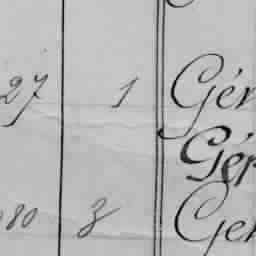 27 1 Gér
Gér
80 3 Ger